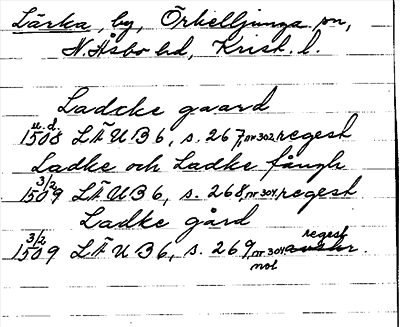 Lärka, by, Örkelljunga sn,
N. Åsbo hd, Krist. l.
Ladcke gaard
u.d.
1508 LÄUB 6, s. 267, nr 302 regest
Ladke och Ladke fångh
3/2
1509 LÄUB 6, s. 268, nr 304, regest
Ladke gård
3/2 regest
1509 LÄUB 6, s. 269, nr 304
not